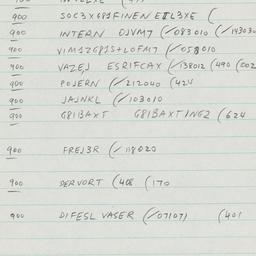 900 SOC3X6P1FINEN ETL3XE (
900 INTERN DJVM7 (/083010 (/143030
900 VIM1Z6P1S+LOFM7 (/058010
900 VAZEJ ESRIFCAX (/138012 (490 (202
900 POJERN (/212040 (424
900 JAJNKL (/103010
900 G8IBAXT G8IBAXTING2 (624
900 FREJ3R (/118020
900 DERVORT (408 (170
900 DIFESL VASER (/07107) (401